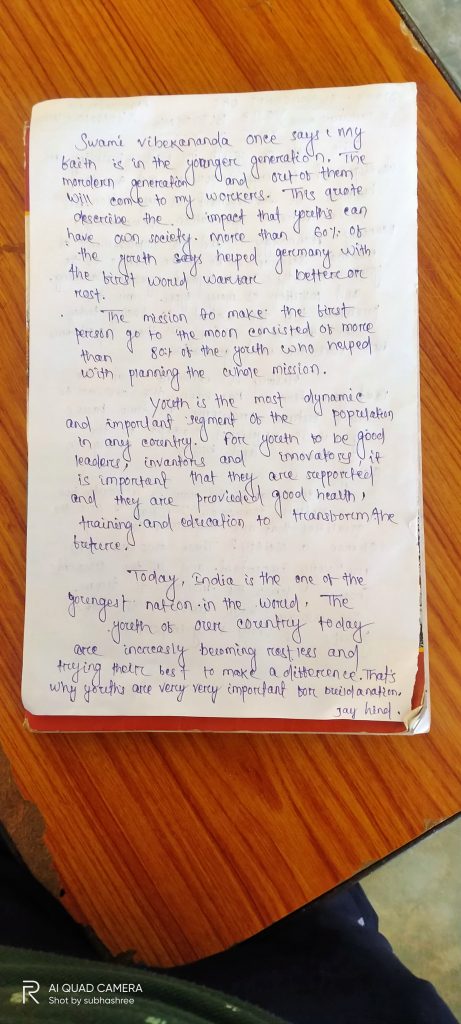 Swami Vibekananda once says, my
faith is in the younger generation. The
mordern generation and out of them
will come to my workers. This quote
describe the impact that youths can
have own society. More than 60% of
the youth says helped germany with
the first world warfare better or
rest.
The mission to make the first
person go to the moon consisted of more
than 80% of the youth who helped
with planning the whole mission.
Youth is the most dynamic
and important segment of the population
in any country. For youth to be good
leaders, invantors and innovators, it
is important that they are supported
and they are provieded good health,
training and education to transform the
future.
Today, India is the one of the
youngest nation in the world. The
youth of our country today
are increasly becoming restless and
trying their best to make a difference. That's
why youths are very very important for build a nation.
Jay hind.
AI QUAD CAMERA
Shot by subhashree